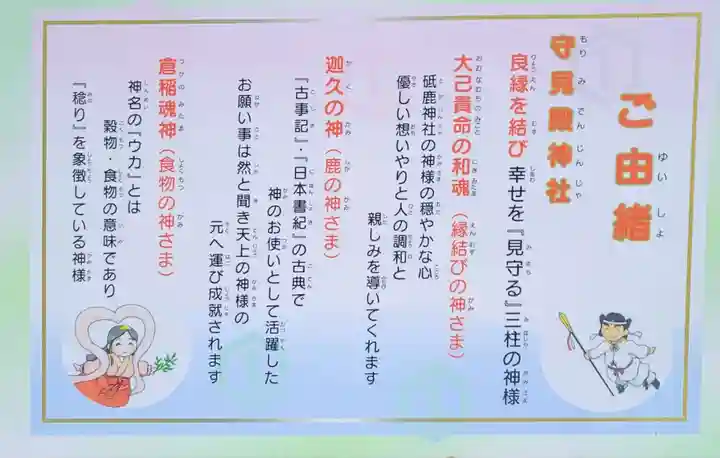 ご由緒
守見殿神社
良縁を結び 幸せを『見守る』三柱の神様
大己貴命の和魂（縁結びの神さま）
砥鹿神社の神様の穏やかな心
優しい想いやりと人の調和と
親しみを導いてくれます
迦久の神（鹿の神さま）
『古事記』・『日本書紀』の古典で
神のお使いとして活躍した
お願い事は然と聞き天上の神様の
元へ運び成就されます
倉稲魂神（食物の神さま）
神名の『ウカ』とは
穀物・食物の意味であり
『稔り』を象徴している神様